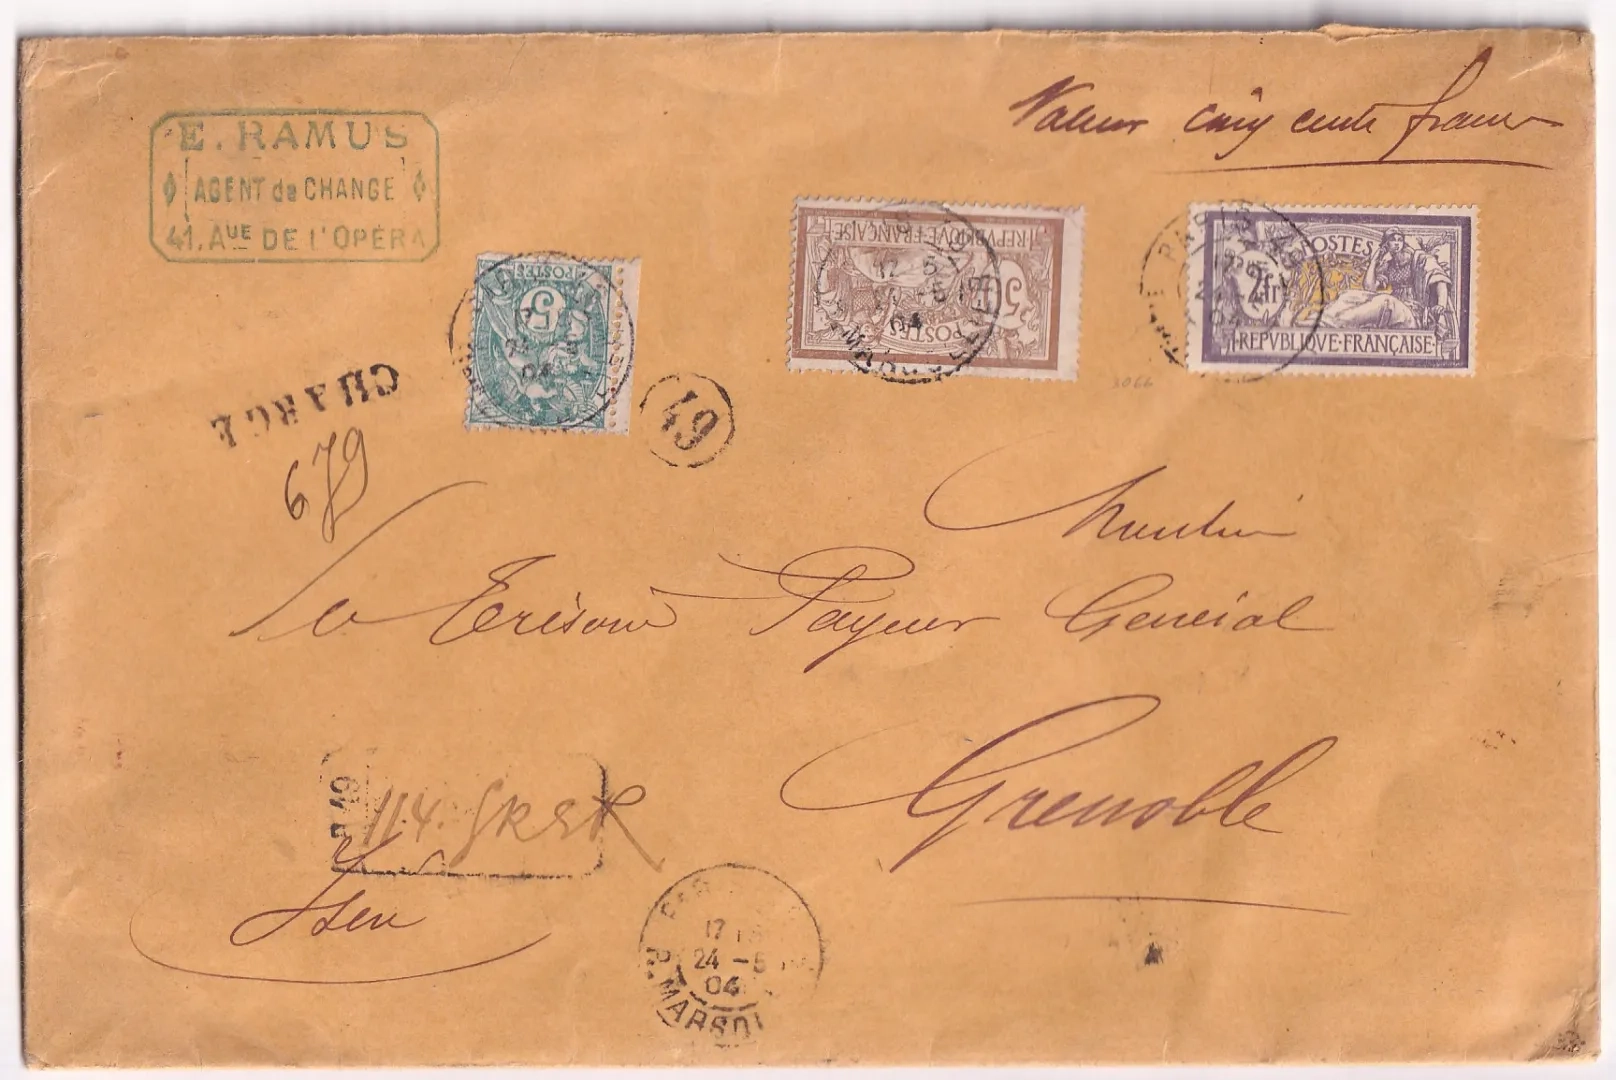 Valeur cinq cents francs
E. RAMUS
AGENT de CHANGE
41. AUE DE L'OPÉRA
POSTES
5
REPUBLIQUE FRANÇAISE
50
POSTES
POSTES
2fr
REPVBLIQVE FRANÇAISE
CHARGE
679
49
3066
Monsieur
le Trésorier Payeur Général
Grenoble
114.
Isère
17
24 -5
04
R. MARSO